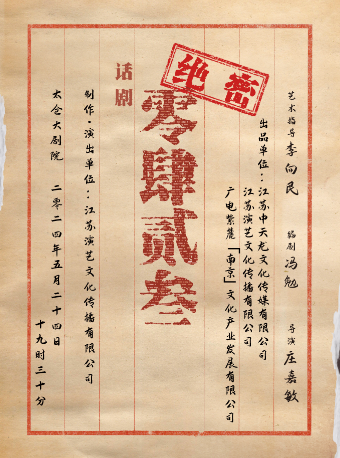 艺术指导 李向民 编剧 冯勉 导演 庄嘉敏
出品单位：江苏中天龙文化传媒有限公司
江苏演艺文化传播有限公司
广电紫荔「南京」文化产业发展有限公司
绝密
零肆贰叁
话剧
制作·演出单位：江苏演艺文化传播有限公司
太仓大剧院 二零二四年五月二十四日
十九时三十分